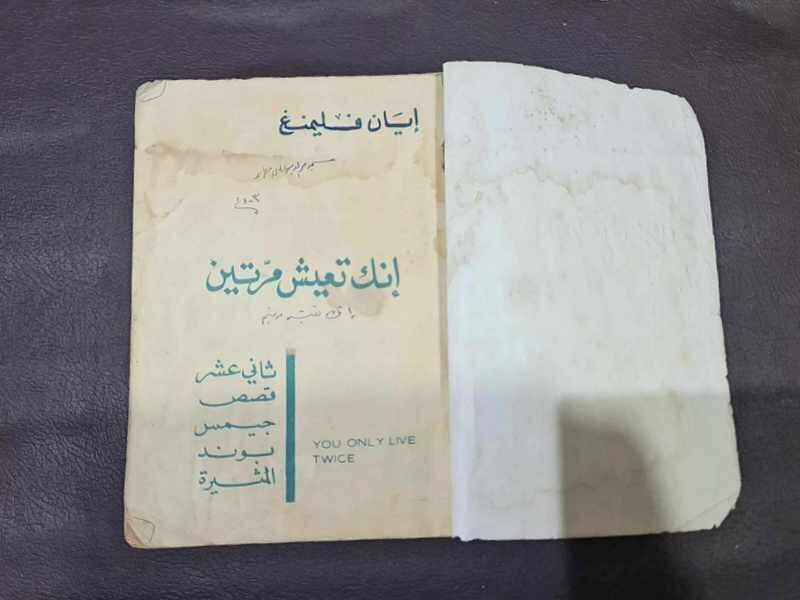 إيان فليمنغ
إنك تعيش مرّتين
ثاني عشر
قصص
جيمس
بوند
المثيرة
YOU ONLY LIVE
TWICE